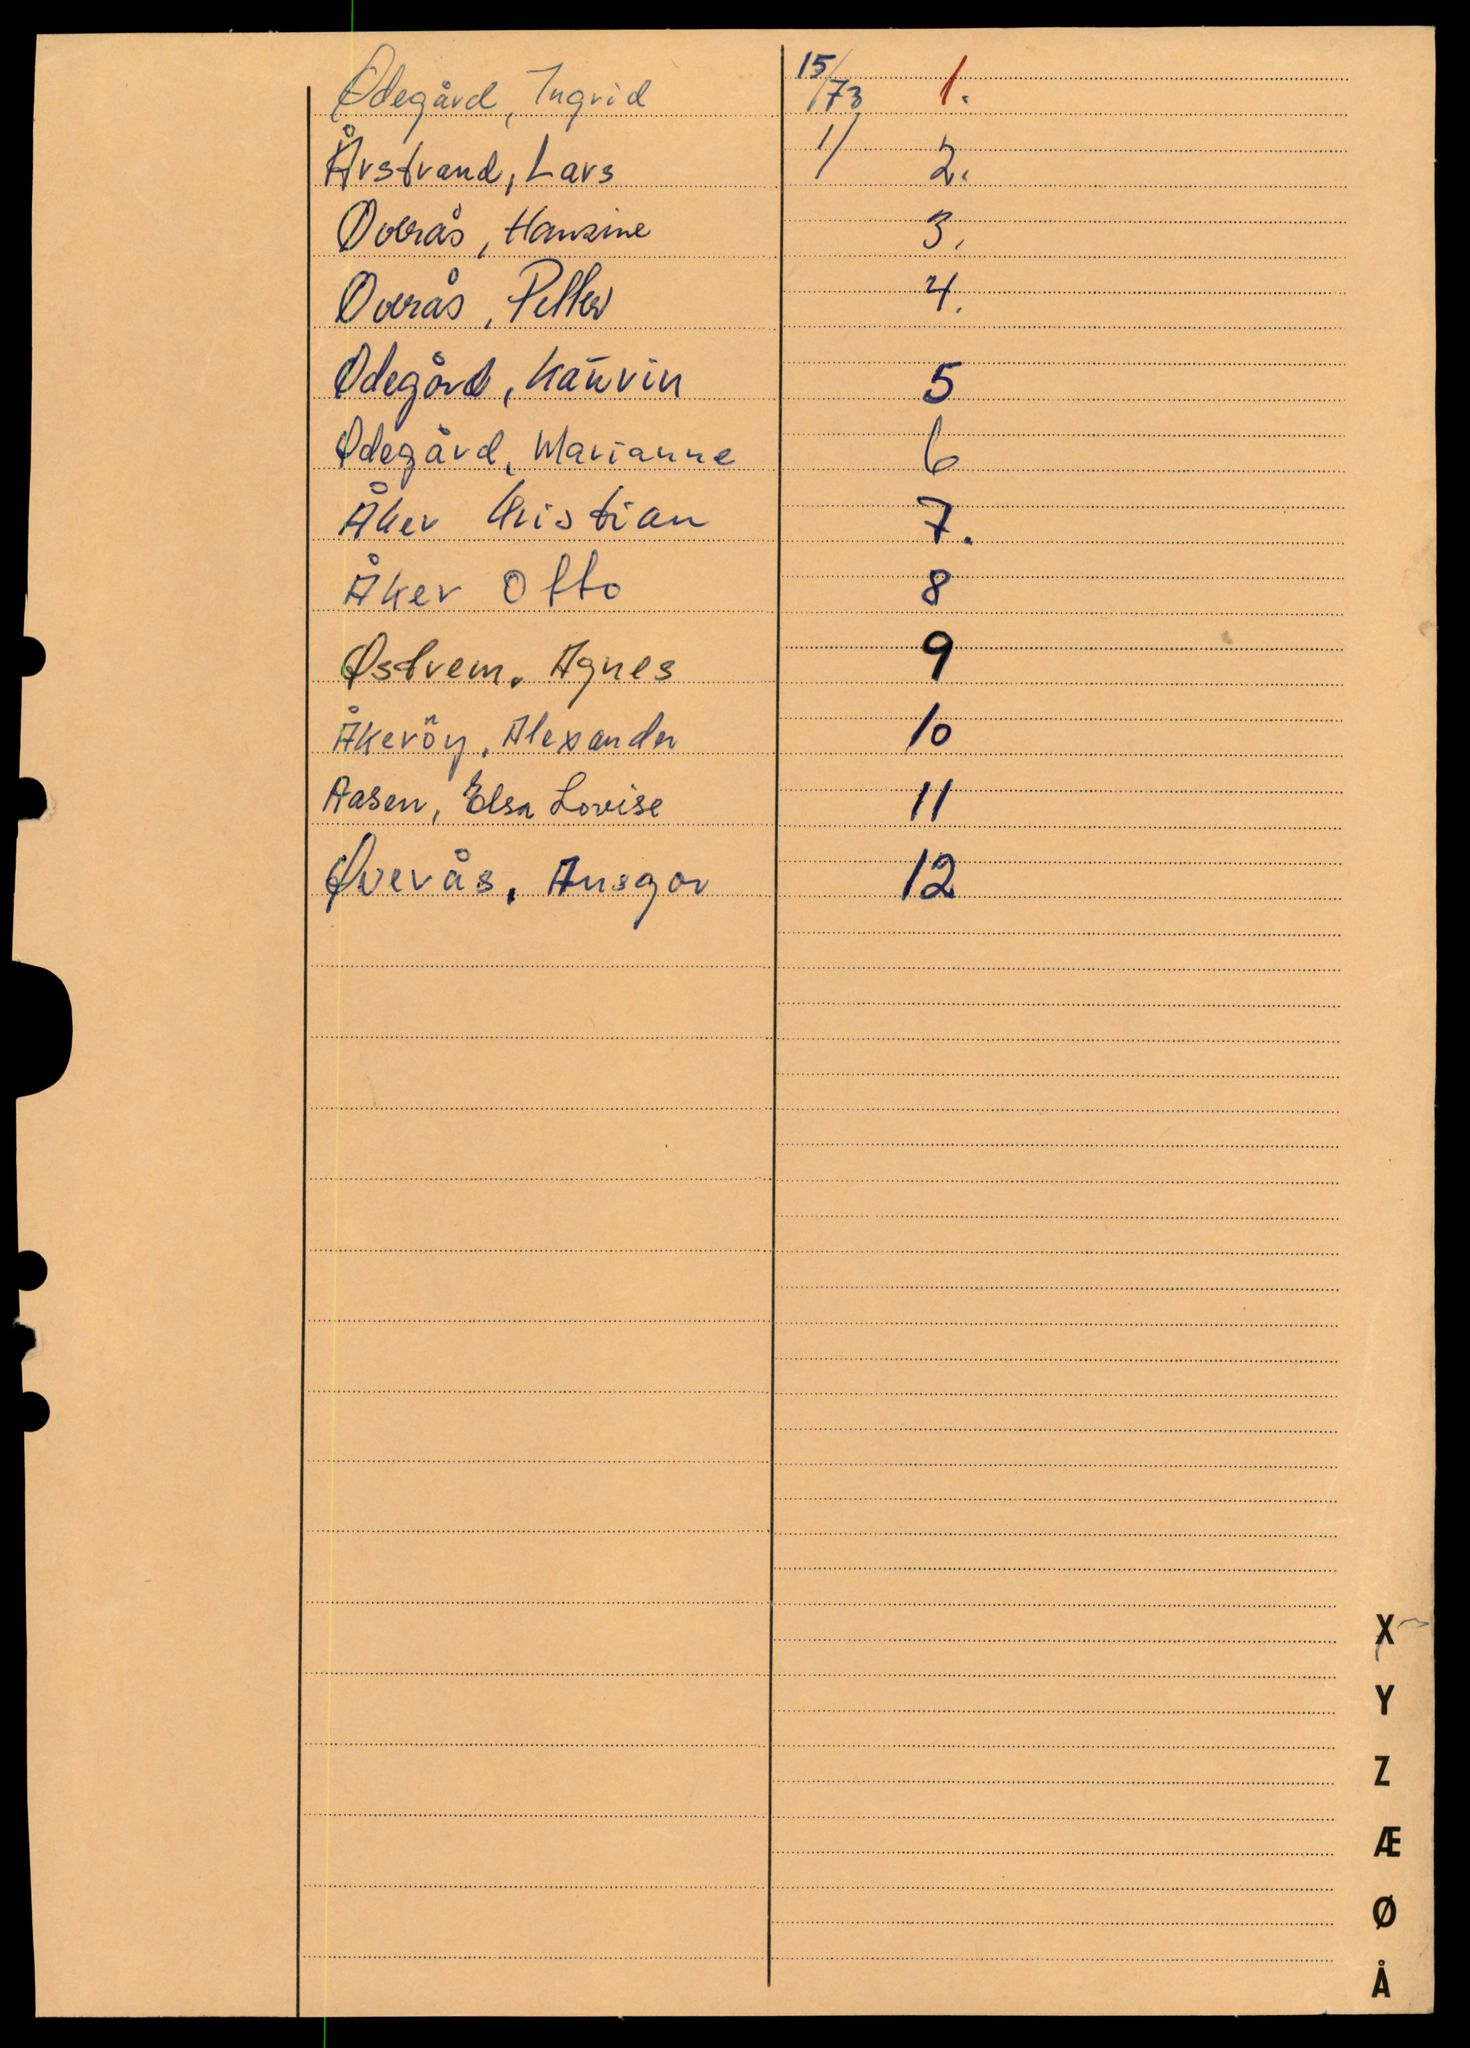 Ødegård, Ingrid 15/73 1.
Årstrand, Lars 1/ 2.
Øverås, Hansine 3.
Øverås, Petter 4.
Ødegård, Kårvin 5
Ødegård, Marianne 6
Åker Kristian 7.
Åker Otto 8
Østrem. Agnes 9
Åkeröy. Alexander 10
Aasen, Elsa Lovise 11
Øverås. Ansgar 12
X
Y
Z
Æ
Ø
Å